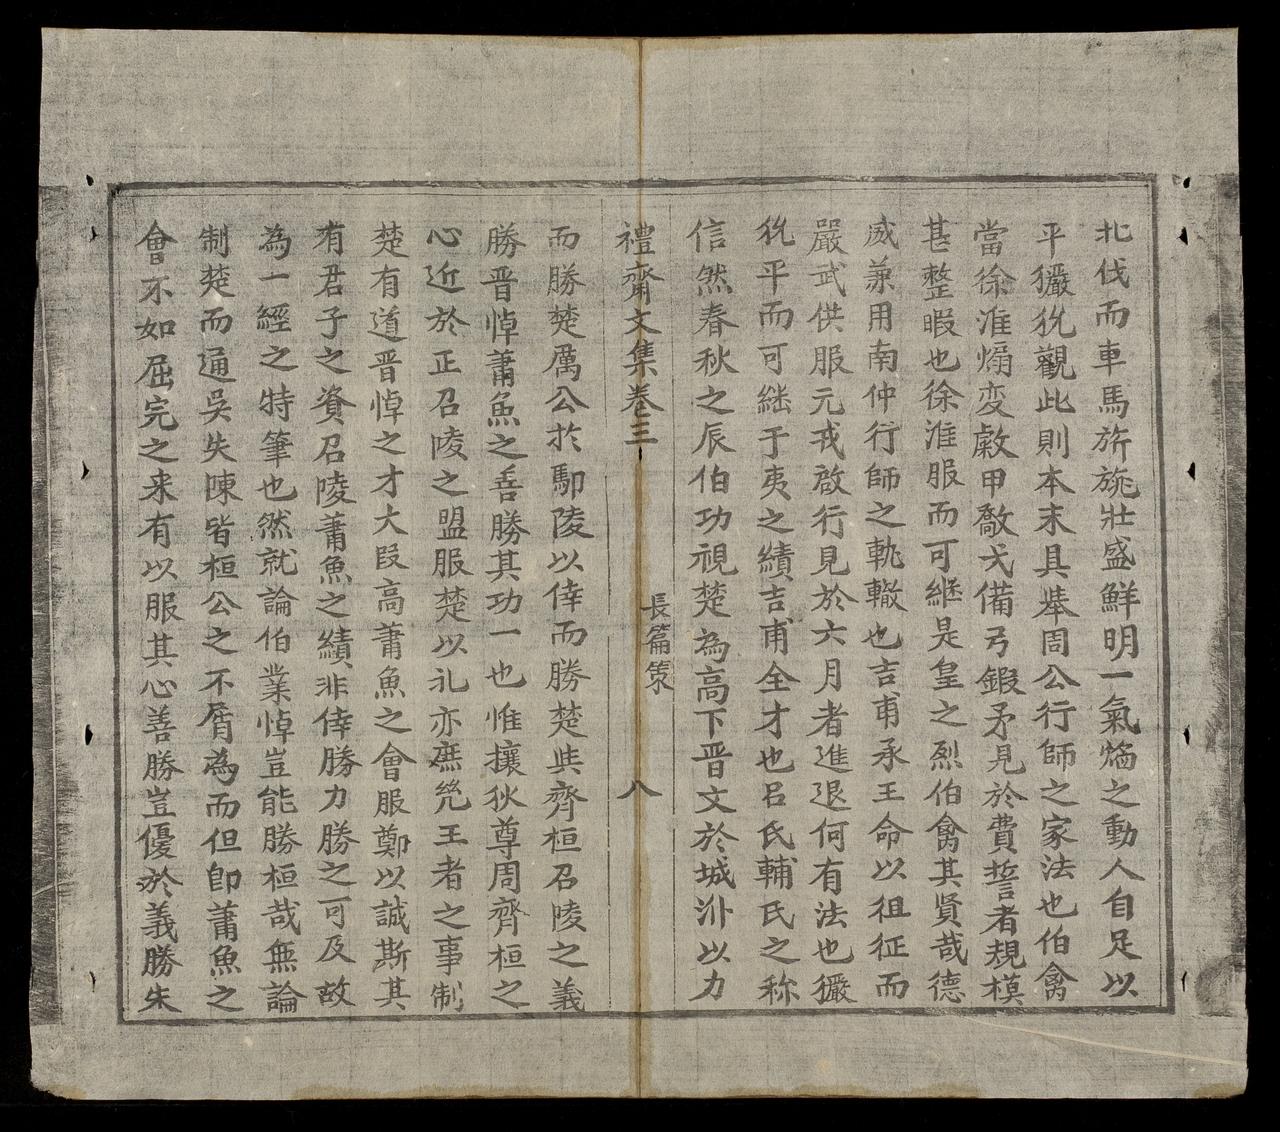 北伐而車馬旂旐壯盛鮮明一氣焰之動人自足以
平玁狁觀此則本末具舉周公行師之家法也伯禽
當徐淮煽変敹甲敽戈備弓鍜矛見於費誓者規模
甚整暇也徐淮服而可継是皇之烈伯禽其賢哉德
威兼用南仲行師之軌轍也吉甫承王命以徂征而
嚴武供服元戎啟行見於六月者進退何有法也玁
狁平而可継于夷之績吉甫全才也呂氏輔氏之称
信然春秋之辰伯功視楚為高下晋文於城濮以力
禮齋文集卷三 長篇策 八
而勝楚厲公於鄢陵以倖而勝楚與齊桓召陵之義
勝晋悼蕭魚之善勝其功一也惟攘狄尊周齊桓之
心近於正召陵之盟服楚以礼亦庶凢王者之事制
楚有道晋悼之才大段高蕭魚之會服鄭以誠斯其
有君子之資召陵蕭魚之績非倖勝力勝之可及故
為一經之特筆也然就論伯業悼豈能勝桓哉無論
制楚而通吳失陳皆桓公之不屑為而但即蕭魚之
會不如屈完之来有以服其心善勝豈優於義勝朱